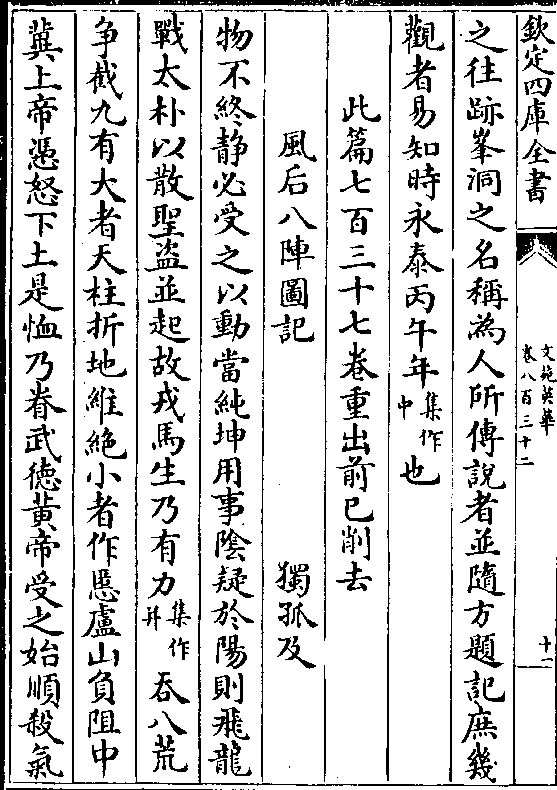 欽定四庫全書
文苑英華
卷八百三十二
十一
之往跡峯洞之名稱為人所傳說者並隨方題記庶幾
觀者易知時永泰丙午年集作中也
此篇七百三十七卷重出前已削去
風后八陣圖記　獨孤及
物不終静必受之以動當純坤用事陰疑於陽則飛龍
戰太朴以散聖盗並起故戎馬生乃有力集作并吞八荒
争截九有大者天柱折地維絶小者作慝盧山負阻中
兾上帝憑怒下土是恤乃眷武德黄帝受之始順殺氣